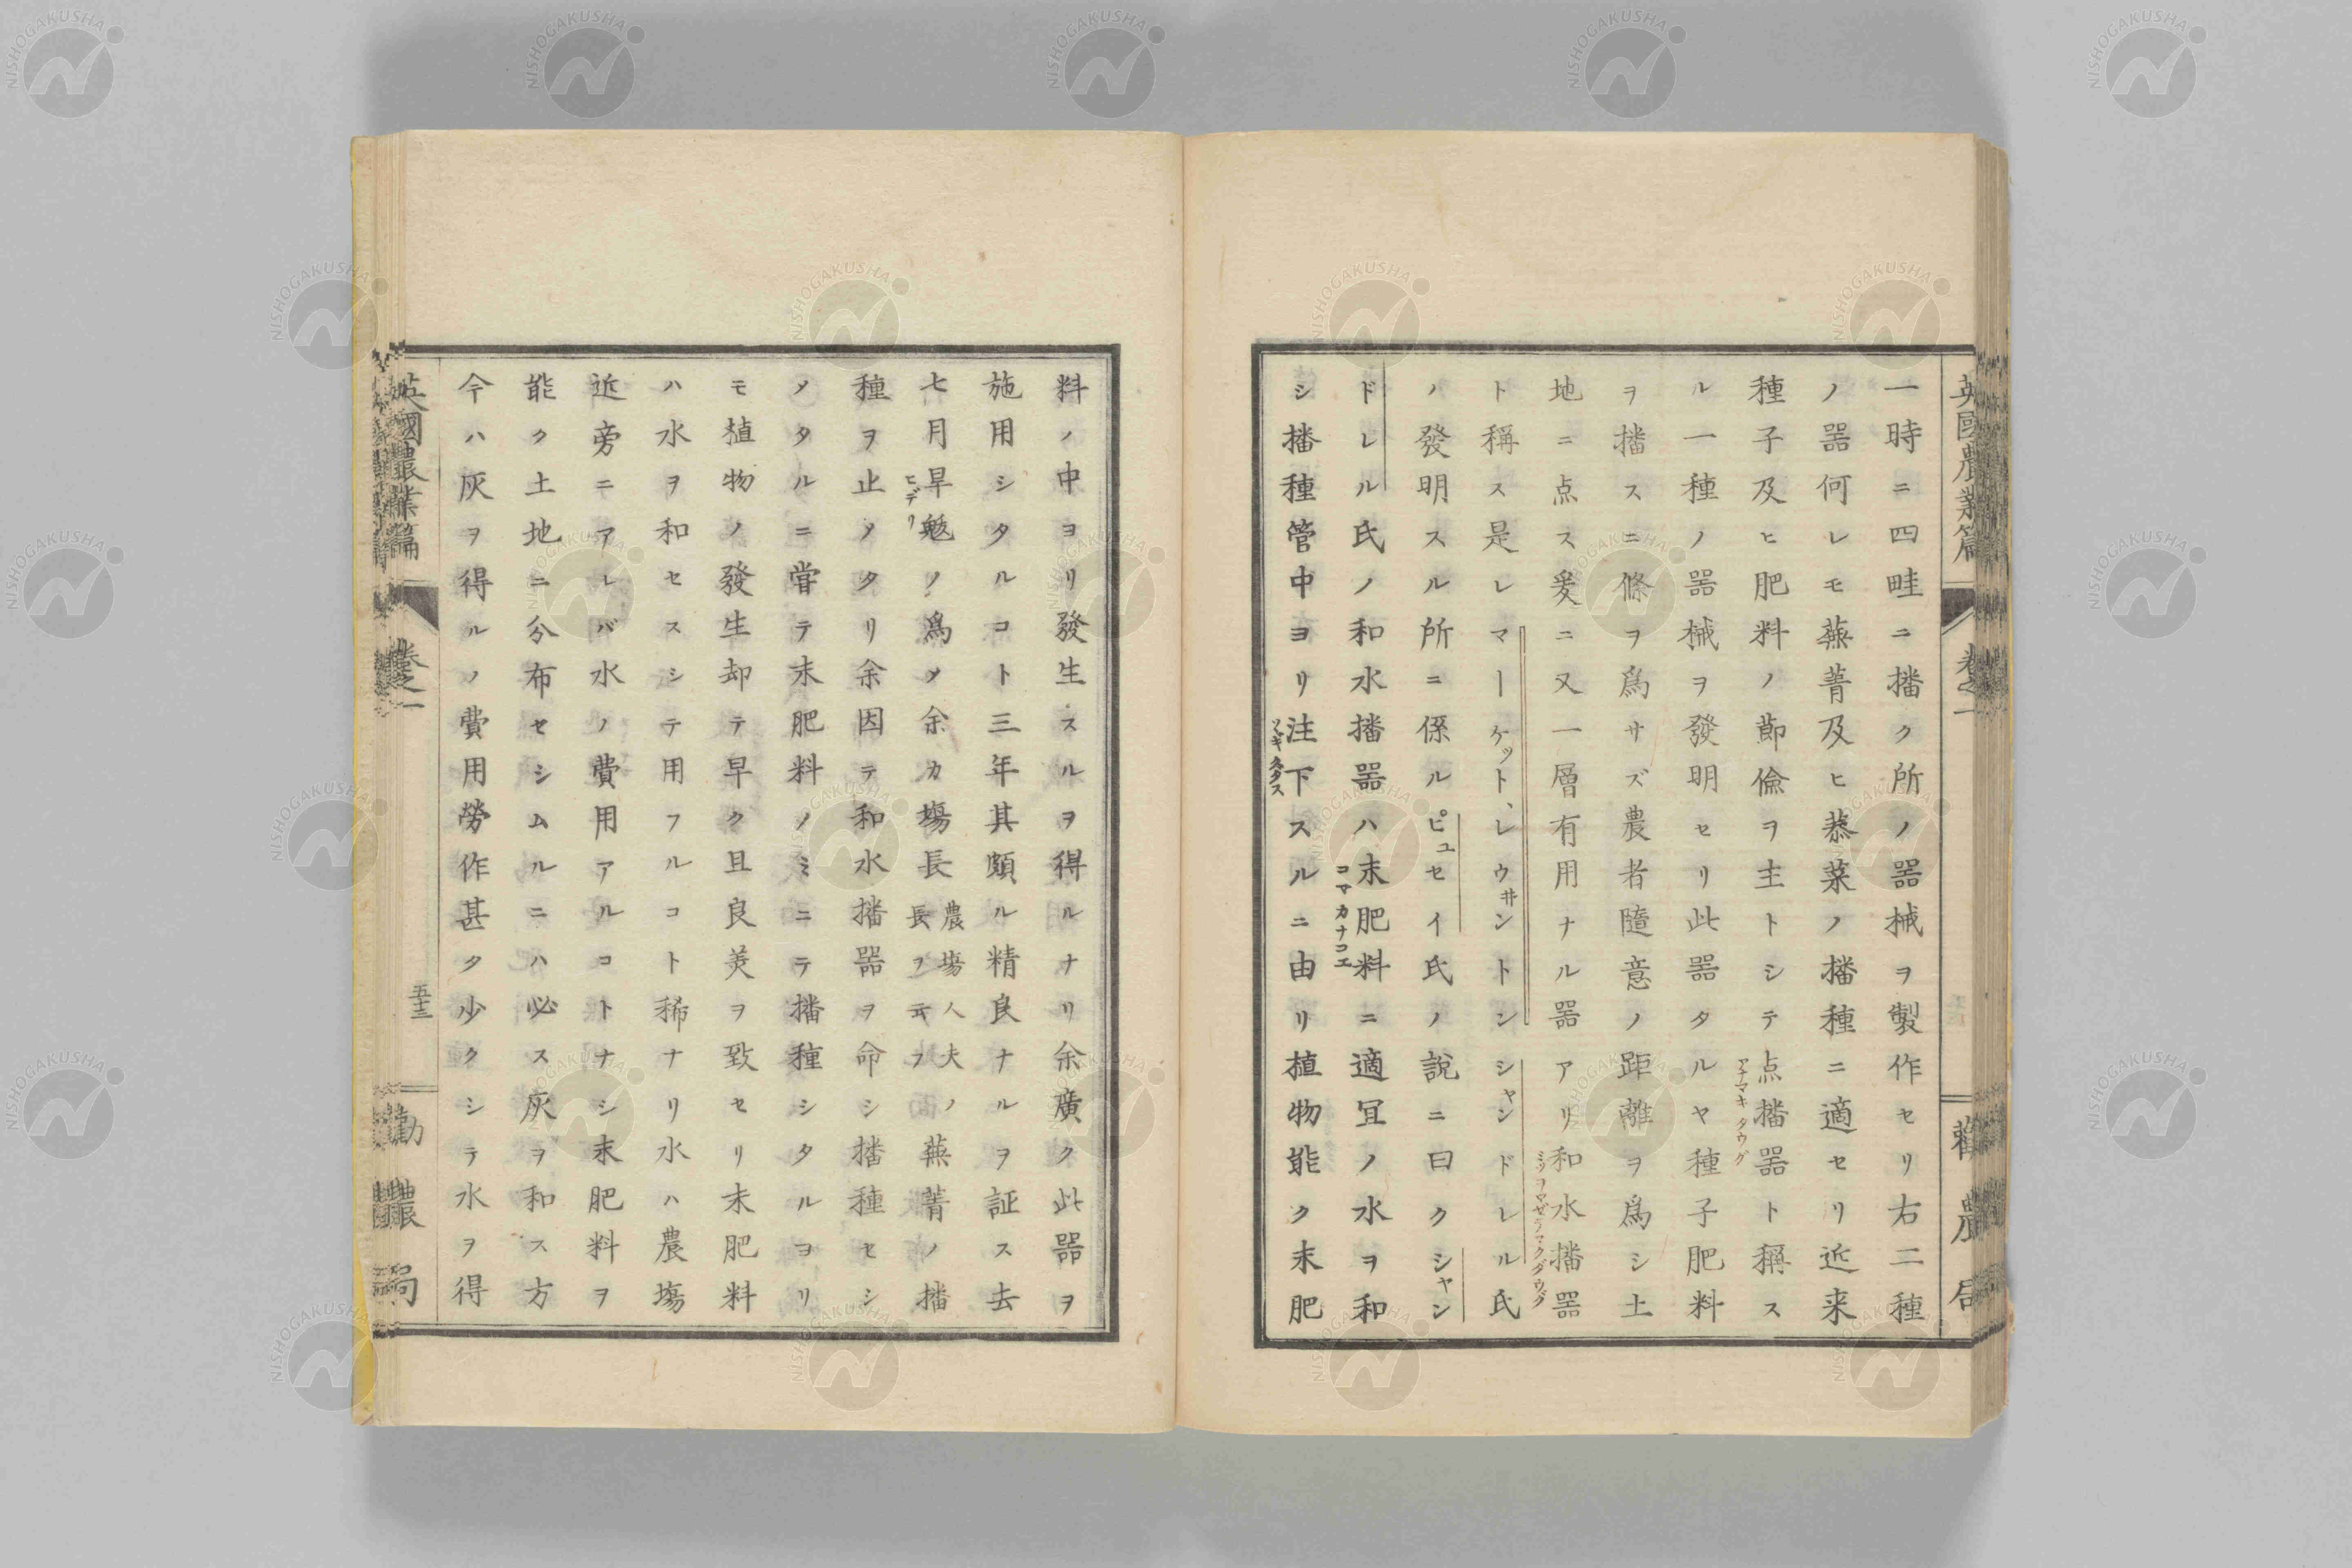 英國農業篇 卷之一 勸農局
一時ニ四畦ニ播ク所ノ器械ヲ製作セリ右二種
ノ器何レモ蕪菁及ヒ菾菜ノ播種ニ適セリ近来
種子及ヒ肥料ノ節儉ヲ主トシテ点播器ト稱ス
アナマキダウグ
ル一種ノ器械ヲ發明セリ此器タルヤ種子肥料
ヲ播スニ條ヲ爲サズ農者隨意ノ距離ヲ爲シ土
地ニ点ス爰ニ又一層有用ナル器アリ和水播器
ミヅヲマゼテマクダウグ
ト稱ス是レマーケット、レウ井ントンシャンドレル氏
ノ發明スル所ニ係ルピュセイ氏ノ說ニ曰クシャン
ドレル氏ノ和水播器ハ末肥料ニ適冝ノ水ヲ和
コマカナコエ
シ播種管中ヨリ注下スルニ由リ植物能ク末肥
料ノ中ヨリ發生スルヲ得ルナリ余廣ク此器ヲ
施用シタルコト三年其頗ル精良ナルヲ証ス去
七月旱魃ノ爲メ余カ塲長農塲人夫ノ長ヲ云フノ蕪菁ノ播
ヒデリ
種ヲ止メタリ余因テ和水播器ヲ命シ播種セシ
メタルニ甞テ末肥料ノミニテ播種シタルヨリ
モ植物ノ發生却テ早ク且良美ヲ致セリ末肥料
ハ水ヲ和セスシテ用フルコト稀ナリ水ハ農塲
近旁ニアレバ水ノ費用アルコトナシ末肥料ヲ
能ク土地ニ分布セシムルニハ必ス灰ヲ和ス方
今ハ灰ヲ得ルノ費用勞作甚タ少クシテ水ヲ得
英國農業篇 卷之一 五十三 勸農局
NISHOGAKUSHA